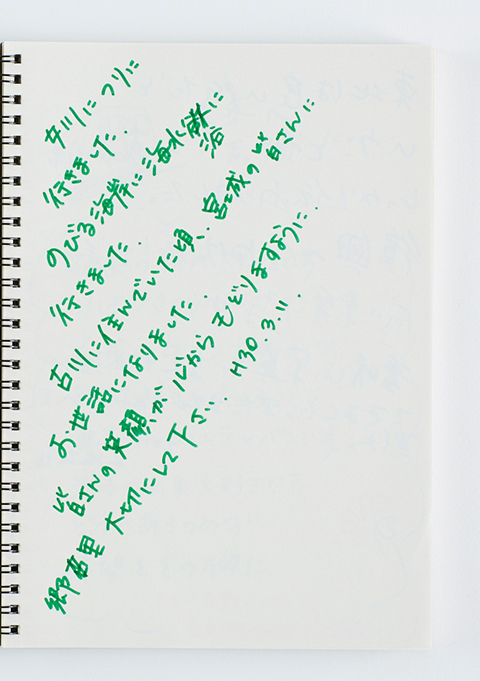 女川につりに
行きました.
のびる海岸に海水浴に
行きました.
古川に住んでいた頃、宮城の皆さんに
お世話になりました.
皆さんの笑顔が心からもどりますように.
郷里 大切にして下さい. H30.3.11.